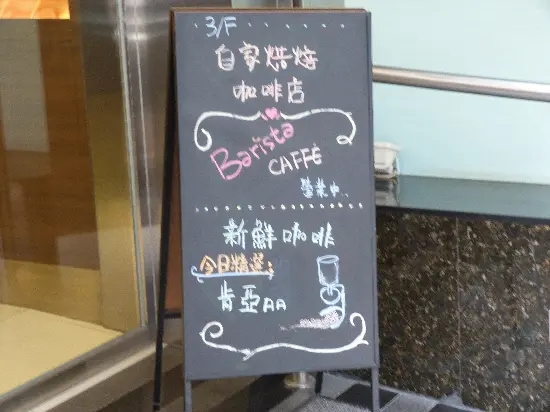 3/F
自家烘焙
咖啡店
Barista
CAFFÉ
營業中
新鮮咖啡
今日精選:
肯亞AA